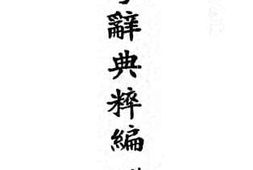 辭典粹編